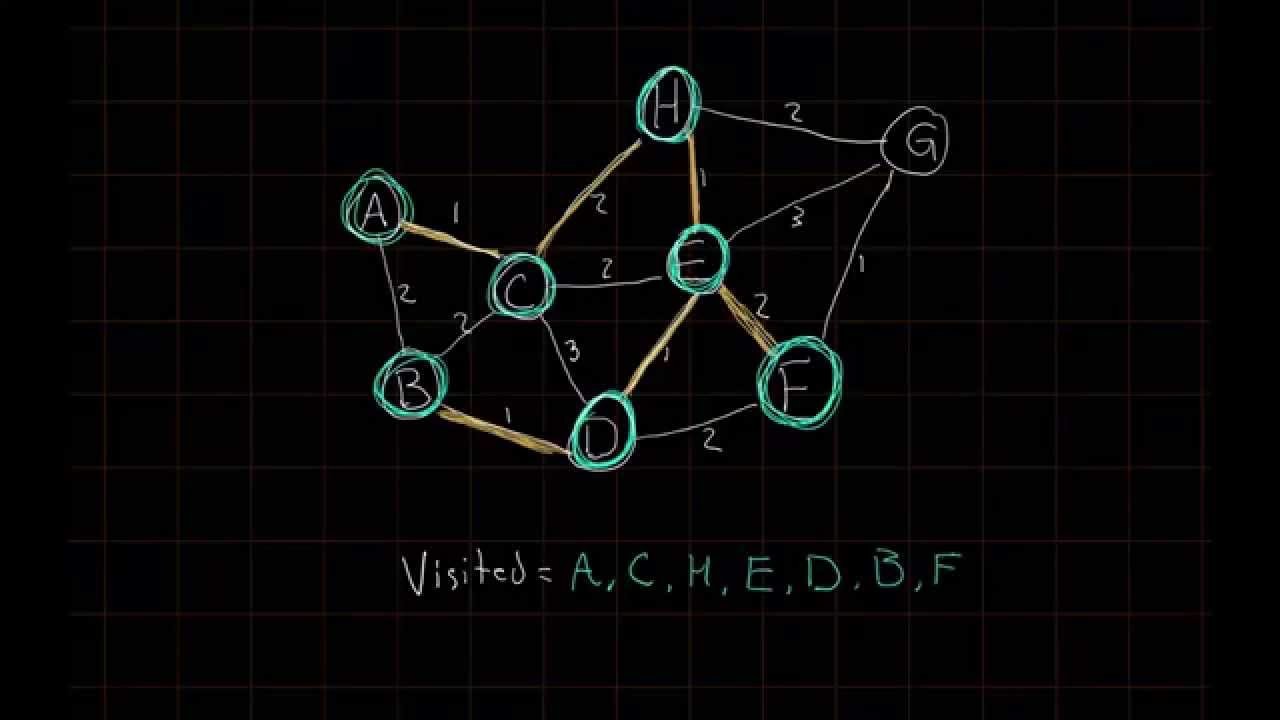 H
2
G
1
A
1
2
3
E
C
2
2
2
1
2
3
1
B
F
1
D
2
Visited = A, C, H, E, D, B, F